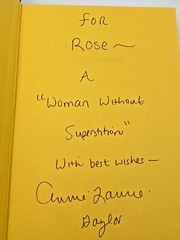 FOR
Rose ~
A
"Woman Without
Superstition"
With best wishes —
Annie Laurie
Gaylor